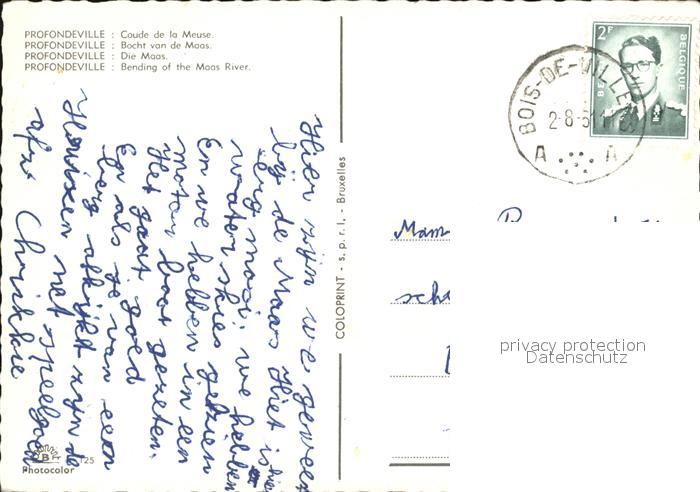 PROFONDEVILLE : Coude de la Meuse.
PROFONDEVILLE : Bocht van de Maas.
PROFONDEVILLE : Die Maas.
PROFONDEVILLE : Bending of the Maas River.
Hier zijn we geweest
bij de Maas Hiet is hier
erg mooi. we hebben
water skies gezien
En we hebben in een
motor boot gezeten.
Het gaat goed
En als je van een
berg afkijkt zijn de
Huizen net speelgoed
afz Chrikkie
COLOPRINT - s. p. r. l. - Bruxelles
2F
BELGIQUE
BOIS-DE-VILLERS
2-8-61
A A
Mam
scha
privacy protection
Datenschutz
125
Photocolor